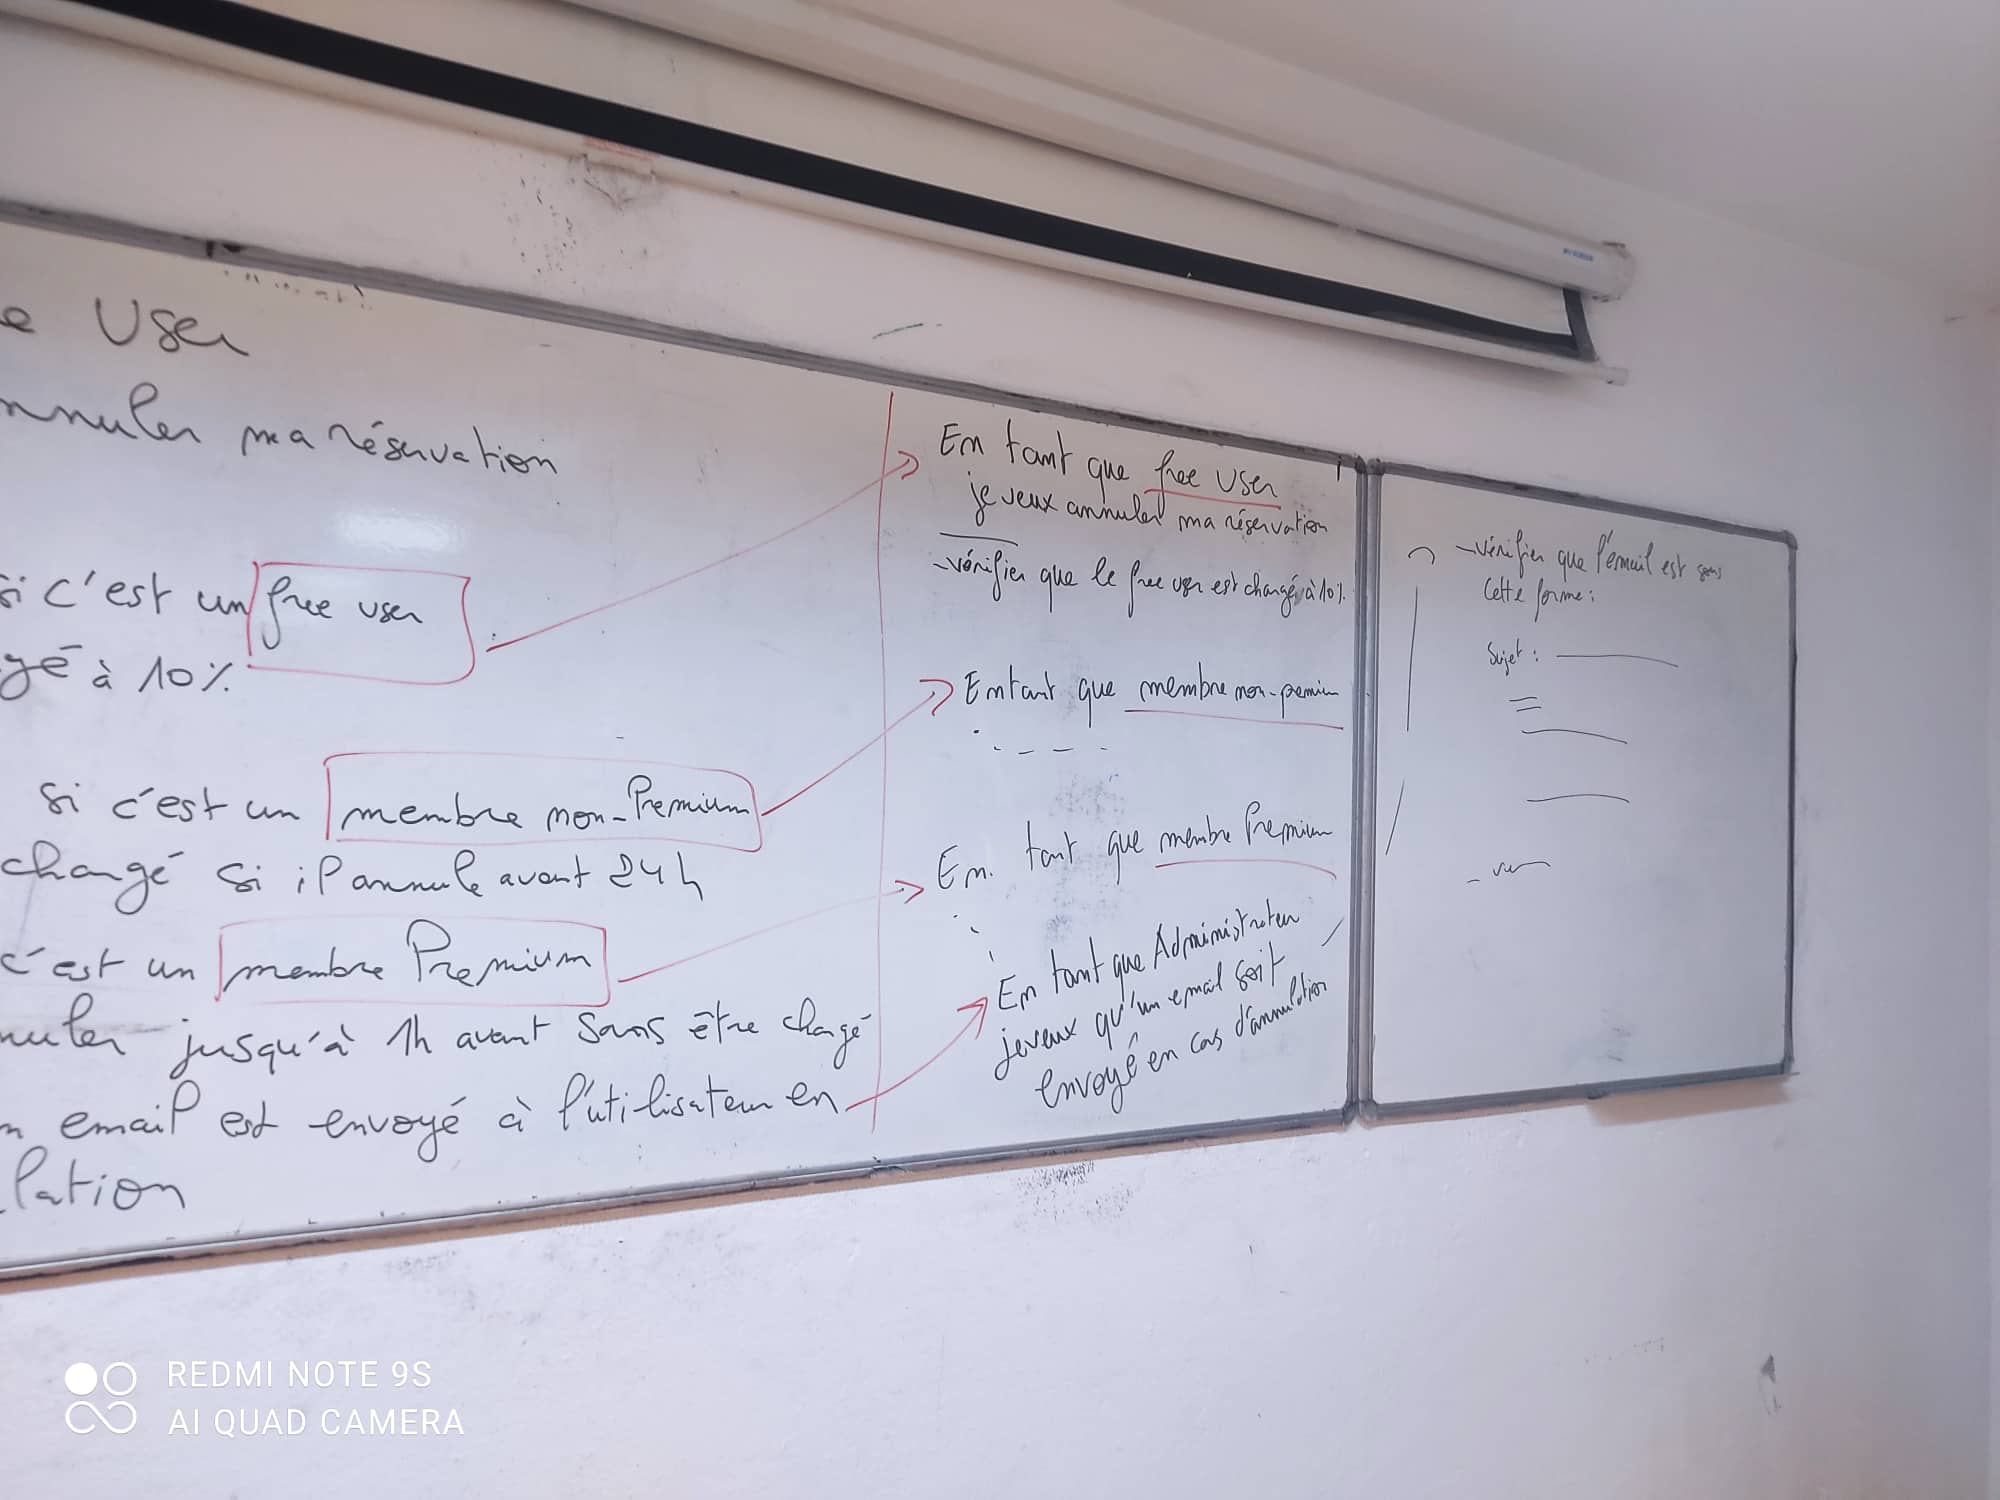 e User
nnuler ma réservation
si c'est un free user
gé à 10%.
si c'est un membre non-Premium
changé si il annule avant 24h
c'est un membre Premium
nuler jusqu'à 1h avant sans être changé
n email est envoyé à l'utilisateur en
lation
En tant que free user
je veux annuler ma réservation
-vérifier que le free user est changé à 10%.
En tant que membre non-premium
En tant que membre Premium
En tant que Administrateur
je veux qu'un email soit
envoyé en cas d'annulation
-vérifier que l'email est sous
cette forme:
Sujet :
REDMI NOTE 9S
AI QUAD CAMERA